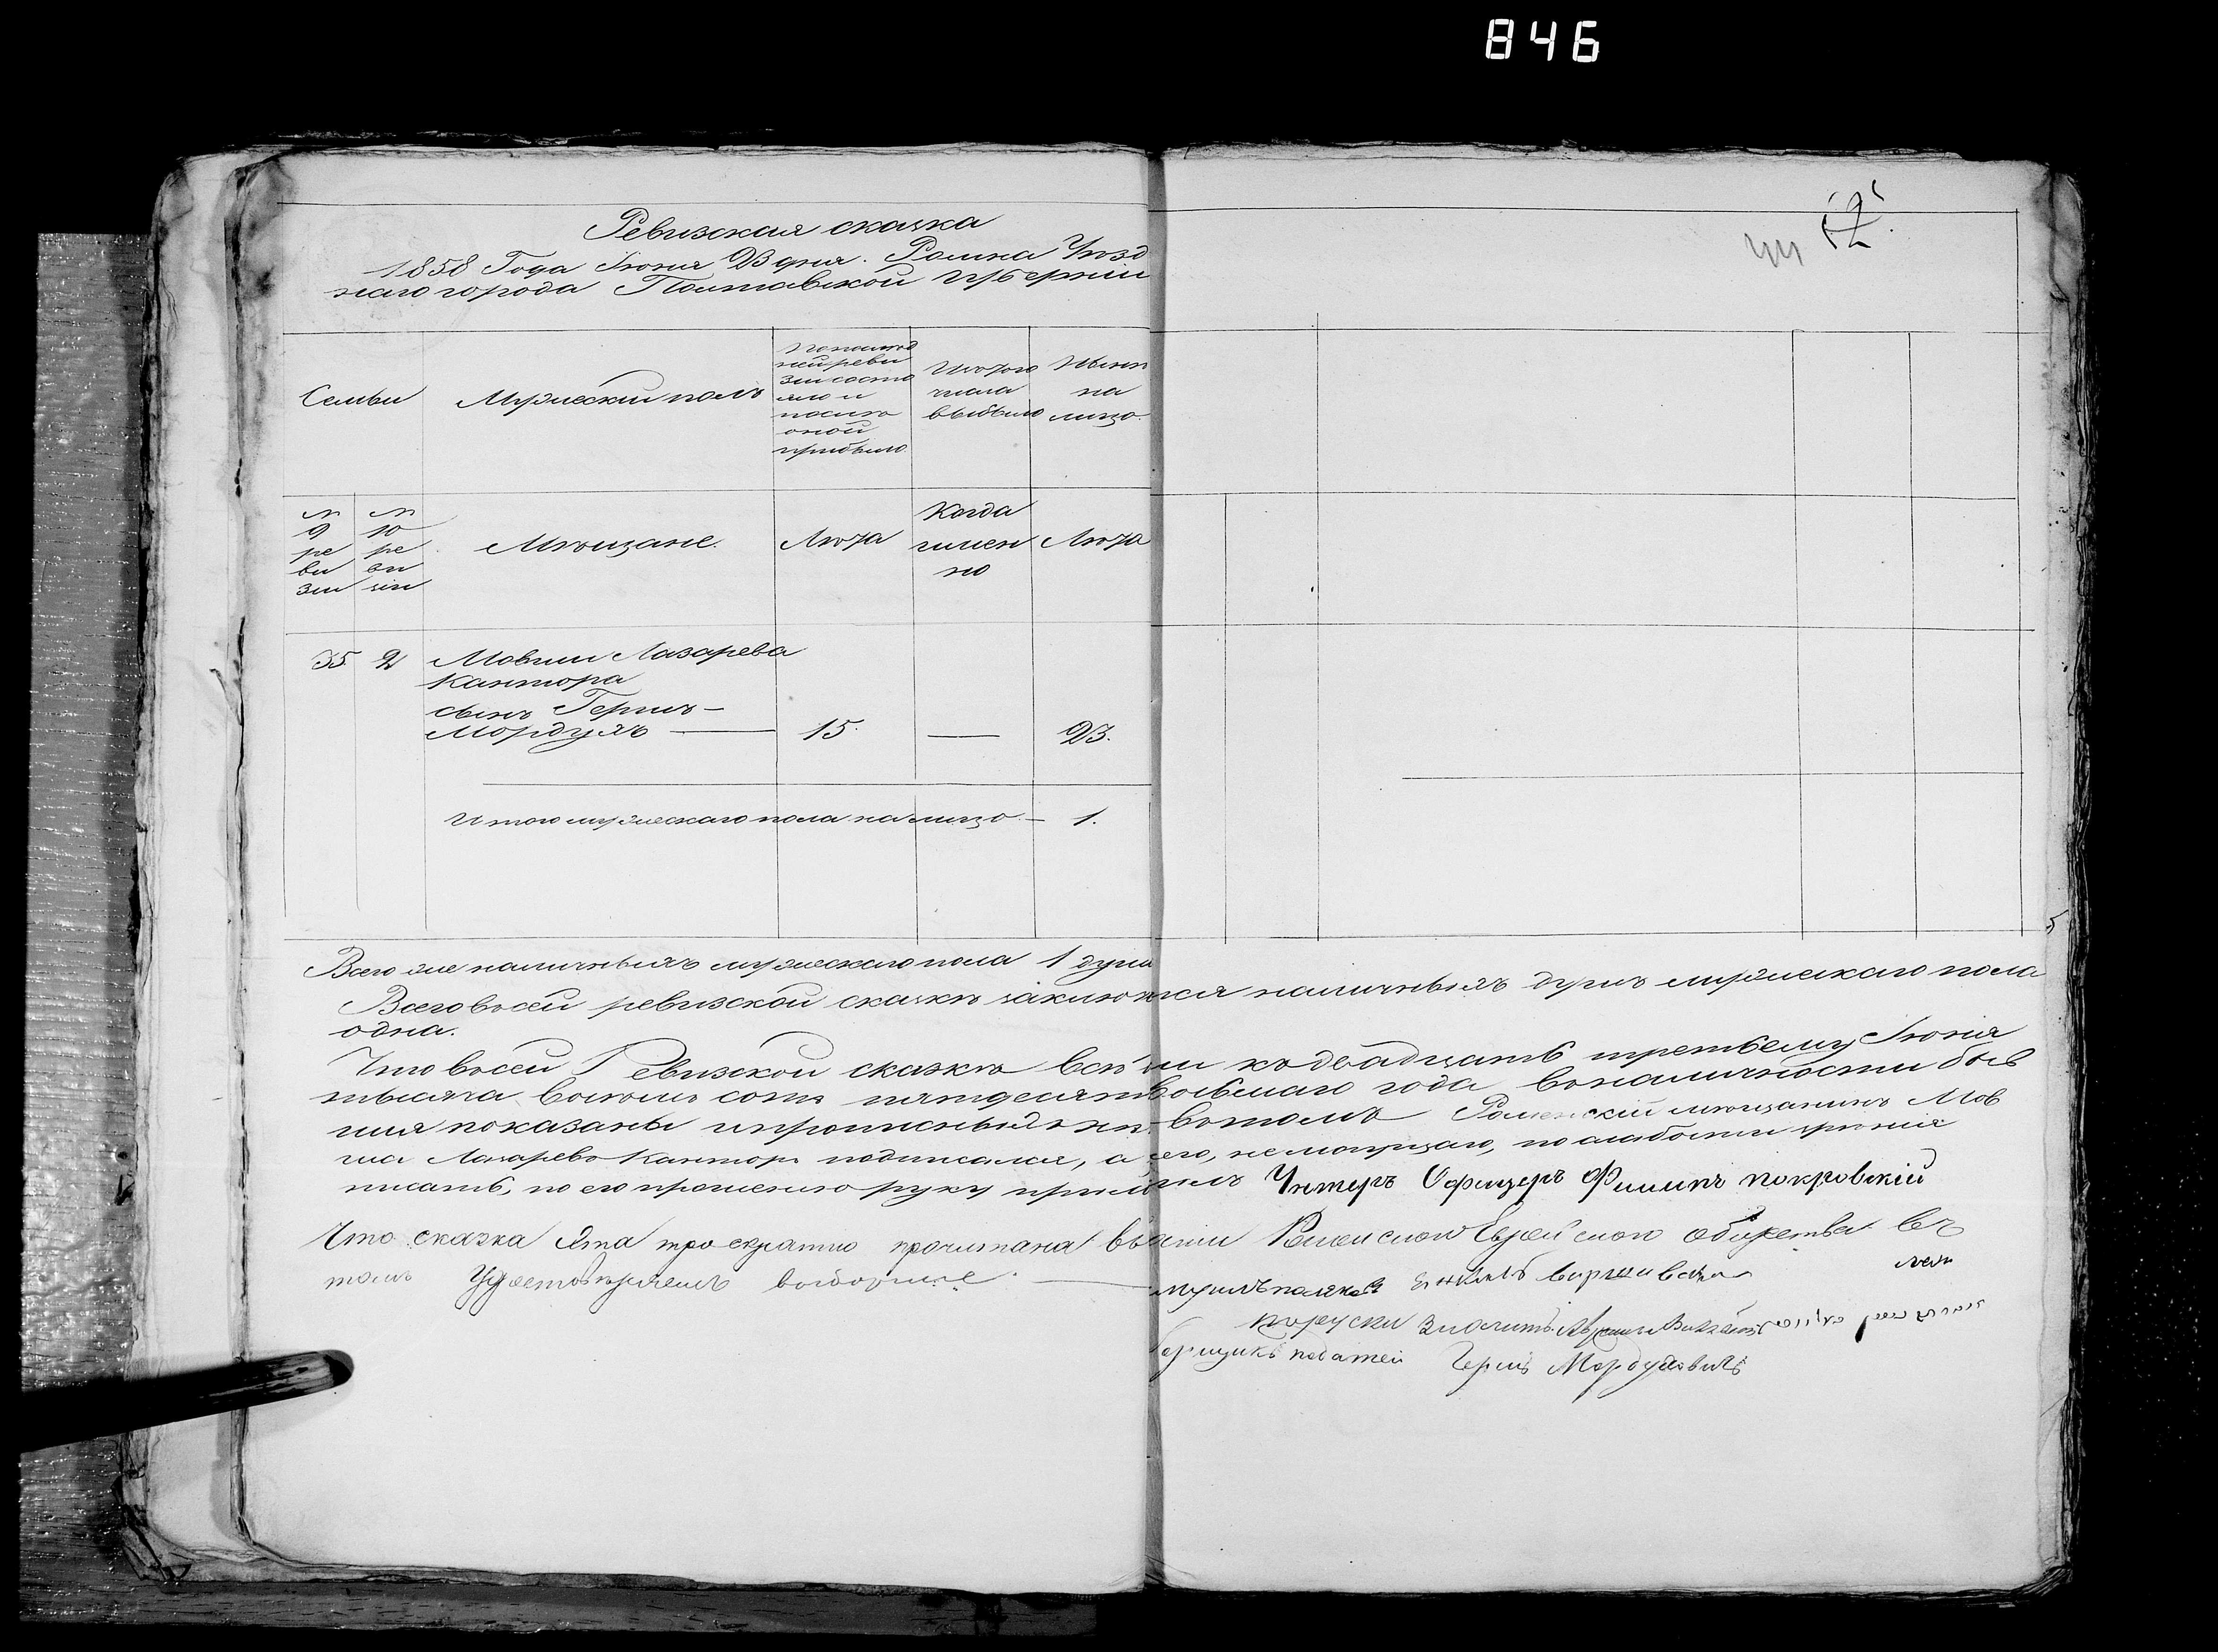 846
12
Ревизская сказка
1858 Года Іюня 23 дня. Ромна Уѣзд
наго города Полтавской губерніи
Семьи
Мужескій полъ
По послѣд
ней реви
зіи состо
яло и
послѣ
оной
прибыло
Изъ того
числа
выбыло
Нынѣ
на
лицо.
№ 9 ре ви зіи
№ 10 ре ви зіи
Мѣщане.
Лѣта
Когда
имен
но
Лѣта
35 2 Мовши Лазарева
Кантора
сынъ Гершъ-
Мордухъ — 15. — 23.
Итого мужескаго пола на лицо — 1.
Всего же наличныхъ мужескаго пола 1 душа
Всего въ сей ревизской сказкѣ заключается наличныхъ душъ мужескаго пола
одна.
Что въ сей Ревизской сказкѣ всѣ къ двадцать третьему Іюня
тысяча восемь сотъ пятдесятъ восьмаго года въ наличности быв
шія показаны и прописныхъ нѣтъ въ томъ Роменскій мѣщанинъ Мов
ша Лазаревъ Канторъ подписался, а его, немогущаго, по слабости зрѣнія
писать, по его прошенію руку приложилъ Унтеръ Офицеръ Филипъ покровскій
Что сказка эта троекратно прочитана въ Роменском Еврейском обществѣ въ
томъ удостовѣряемъ
поруски значитъ
податей Гершъ Мордуховичъ